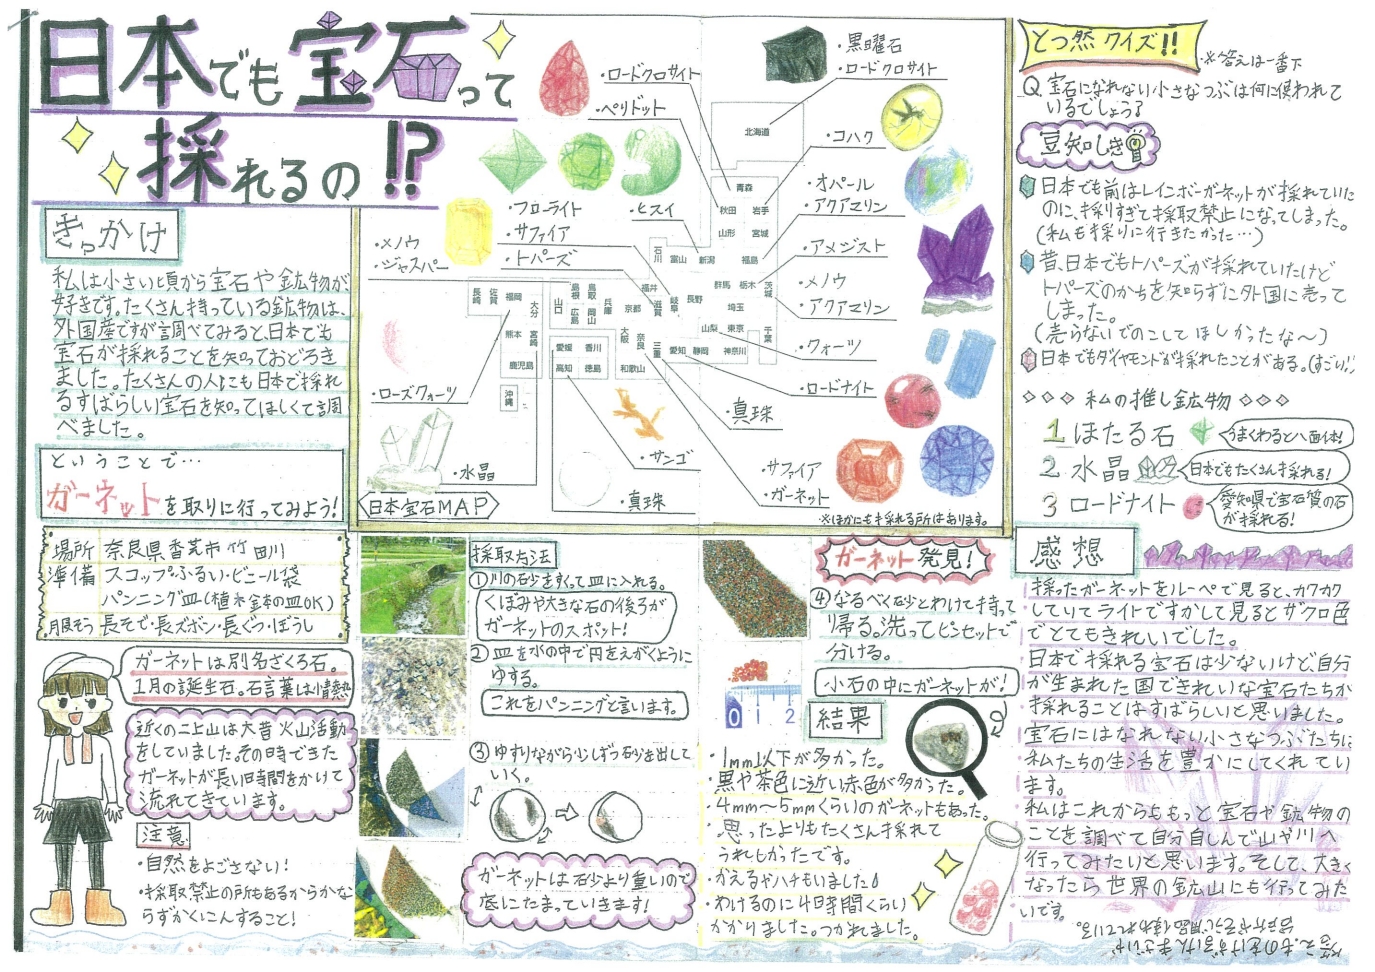 日本でも宝石って
採れるの!?
きっかけ
私は小さい頃から宝石や鉱物が
好きです。たくさん持っている鉱物は、
外国産ですが調べてみると、日本でも
宝石が採れることを知っておどろき
ました。たくさんの人にも日本で採れ
るすばらしい宝石を知ってほしくて調
べました。
ということで…
ガーネットを取りに行ってみよう!
場所 奈良県香芝市竹田川
準備 スコップ・ふるい・ビニール袋
パンニング皿(植木鉢の皿OK)
服そう 長そで・長ズボン・長ぐつ・ぼうし
ガーネットは別名ざくろ石。
1月の誕生石。石言葉は情熱
近くの二上山は大昔火山活動
をしていました。その時できた
ガーネットが長い時間をかけて
流れてきています。
注意
・自然をよごさない!
・採取禁止の所もあるからかな
らずかくにんすること!
・ロードクロサイト
・ペリドット
・黒曜石
・ロードクロサイト
・コハク
・オパール
・アクアマリン
・アメジスト
・メノウ
・アクアマリン
・クォーツ
・ロードナイト
・真珠
・サファイア
・ガーネット
・フローライト
・サファイア
・トパーズ
・ヒスイ
・メノウ
・ジャスパー
・ローズクォーツ
・水晶
・サンゴ
・真珠
北海道
青森
秋田 岩手
山形 宮城
石川 富山 新潟 福島
群馬 栃木 茨城
福井 岐阜 長野 埼玉
滋賀 山梨 東京 千葉
京都 兵庫 鳥取 島根 岡山 広島 山口
大阪 奈良 三重 愛知 静岡 神奈川
和歌山
愛媛 香川
高知 徳島
長崎 佐賀 福岡 大分
熊本 宮崎
鹿児島
沖縄
日本宝石MAP
※ほかにも採れる所はあります。
採取方法
①川の砂をすくって皿に入れる。
くぼみや大きな石の後ろが
ガーネットのスポット!
②皿を水の中で円をえがくように
ゆする。
これをパンニングと言います。
③ゆすりながら少しずつ砂を出して
いく。
ガーネットは石少より重いので
底にたまっていきます!
ガーネット発見!
④なるべく砂とわけて持って
帰る。洗ってピンセットで
分ける。
小石の中にガーネットが!
0 1 2
結果
・1mm以下が多かった。
・黒や茶色に近い赤色が多かった。
・4mm〜5mmくらいのガーネットもあった。
・思ったよりもたくさん採れて
うれしかったです。
・かえるやハチもいました
・わけるのに4日時間くらい
かかりました。つかれました。
とつ然クイズ!!
※答えは一番下
Q 宝石になれない小さなつぶは何に使われて
いるでしょう?
豆知しき
日本でも前はレインボーガーネットが採れていた
のに、採りすぎて採取禁止になってしまった。
(私も採りに行きたかった…)
昔、日本でもトパーズが採れていたけど
トパーズのかちを知らずに外国に売って
しまった。
(売らないでのこしてほしかったな〜)
日本でもダイヤモンドが採れたことがある。(すごい!!)
私の推し鉱物
1 ほたる石
うまくわると八面体!
2 水晶
日本でもたくさん採れる!
3 ロードナイト
愛知県で宝石質の石
が採れる!
感想
採ったガーネットをルーペで見ると、カクカク
していてライトですかして見るとザクロ色
でとてもきれいでした。
日本で採れる宝石は少ないけど、自分
が生まれた国できれいな宝石たちが
採れることはすばらしいと思いました。
宝石にはなれない小さなつぶたちは
私たちの生活を豊かにしてくれてい
ます。
私はこれからももっと宝石や鉱物の
ことを調べて自分自しんで山や川へ
行ってみたいと思います。そして、大きく
なったら世界の鉱山にも行ってみた
いです。
答え.ものをけずるけんまざいや